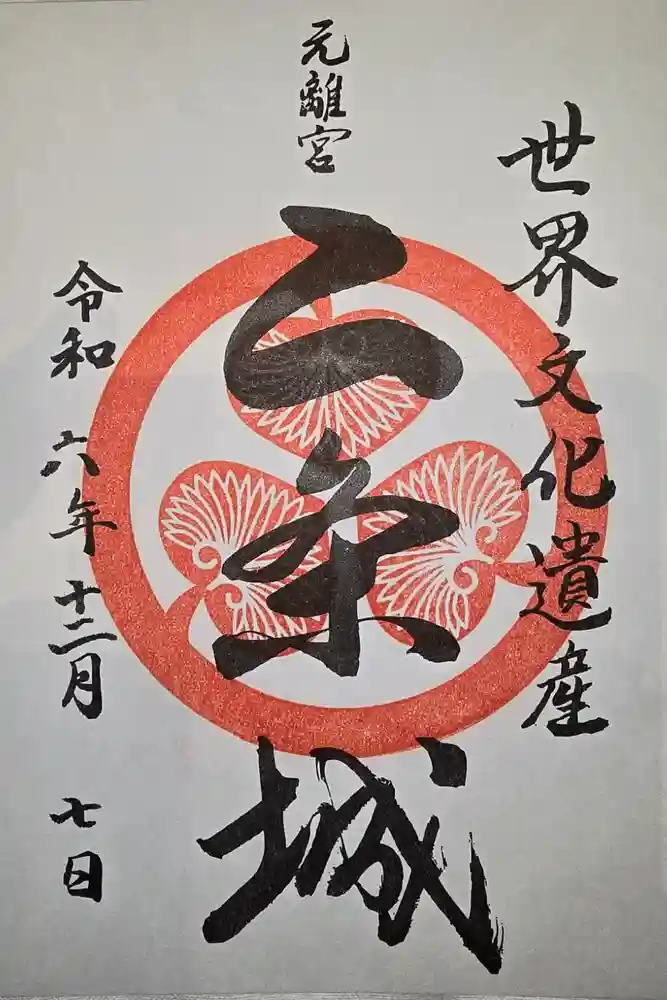 世界文化遺産
元離宮
二条城
令和六年十二月七日